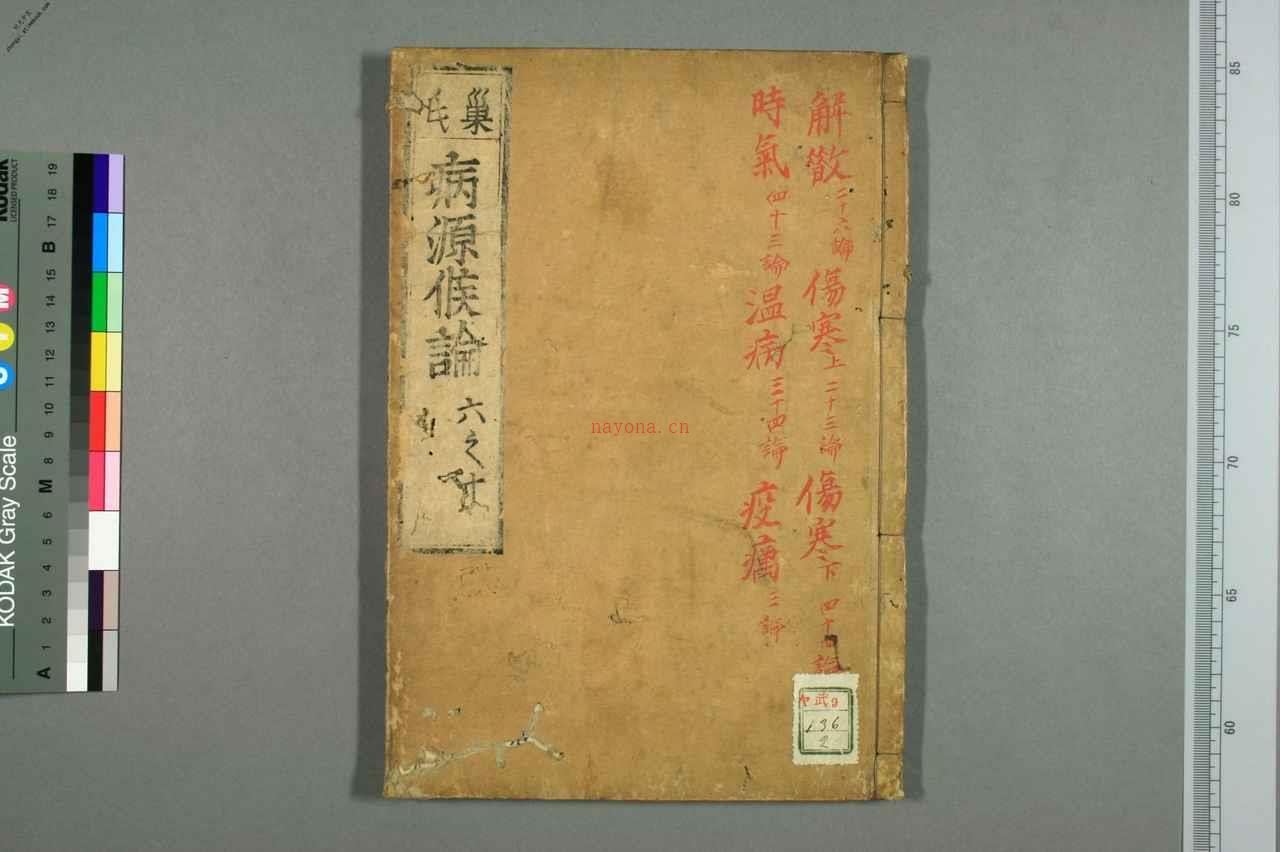 解散 二十六論 傷寒上 二十三論 傷寒下 四十 論
時氣 四十三論 温病 三十四論 疫癘 三論
巢氏
病源候論 六之
ヤ 武 9
136
2
nayona.cn
KODAK Gray Scale
Kodak
LICENSED PRODUCT
A 1 2 3 4 5 6 M 8 9 10 11 12 13 14 15 B 17 18 19
C Y M
85
80
75
70
65
60